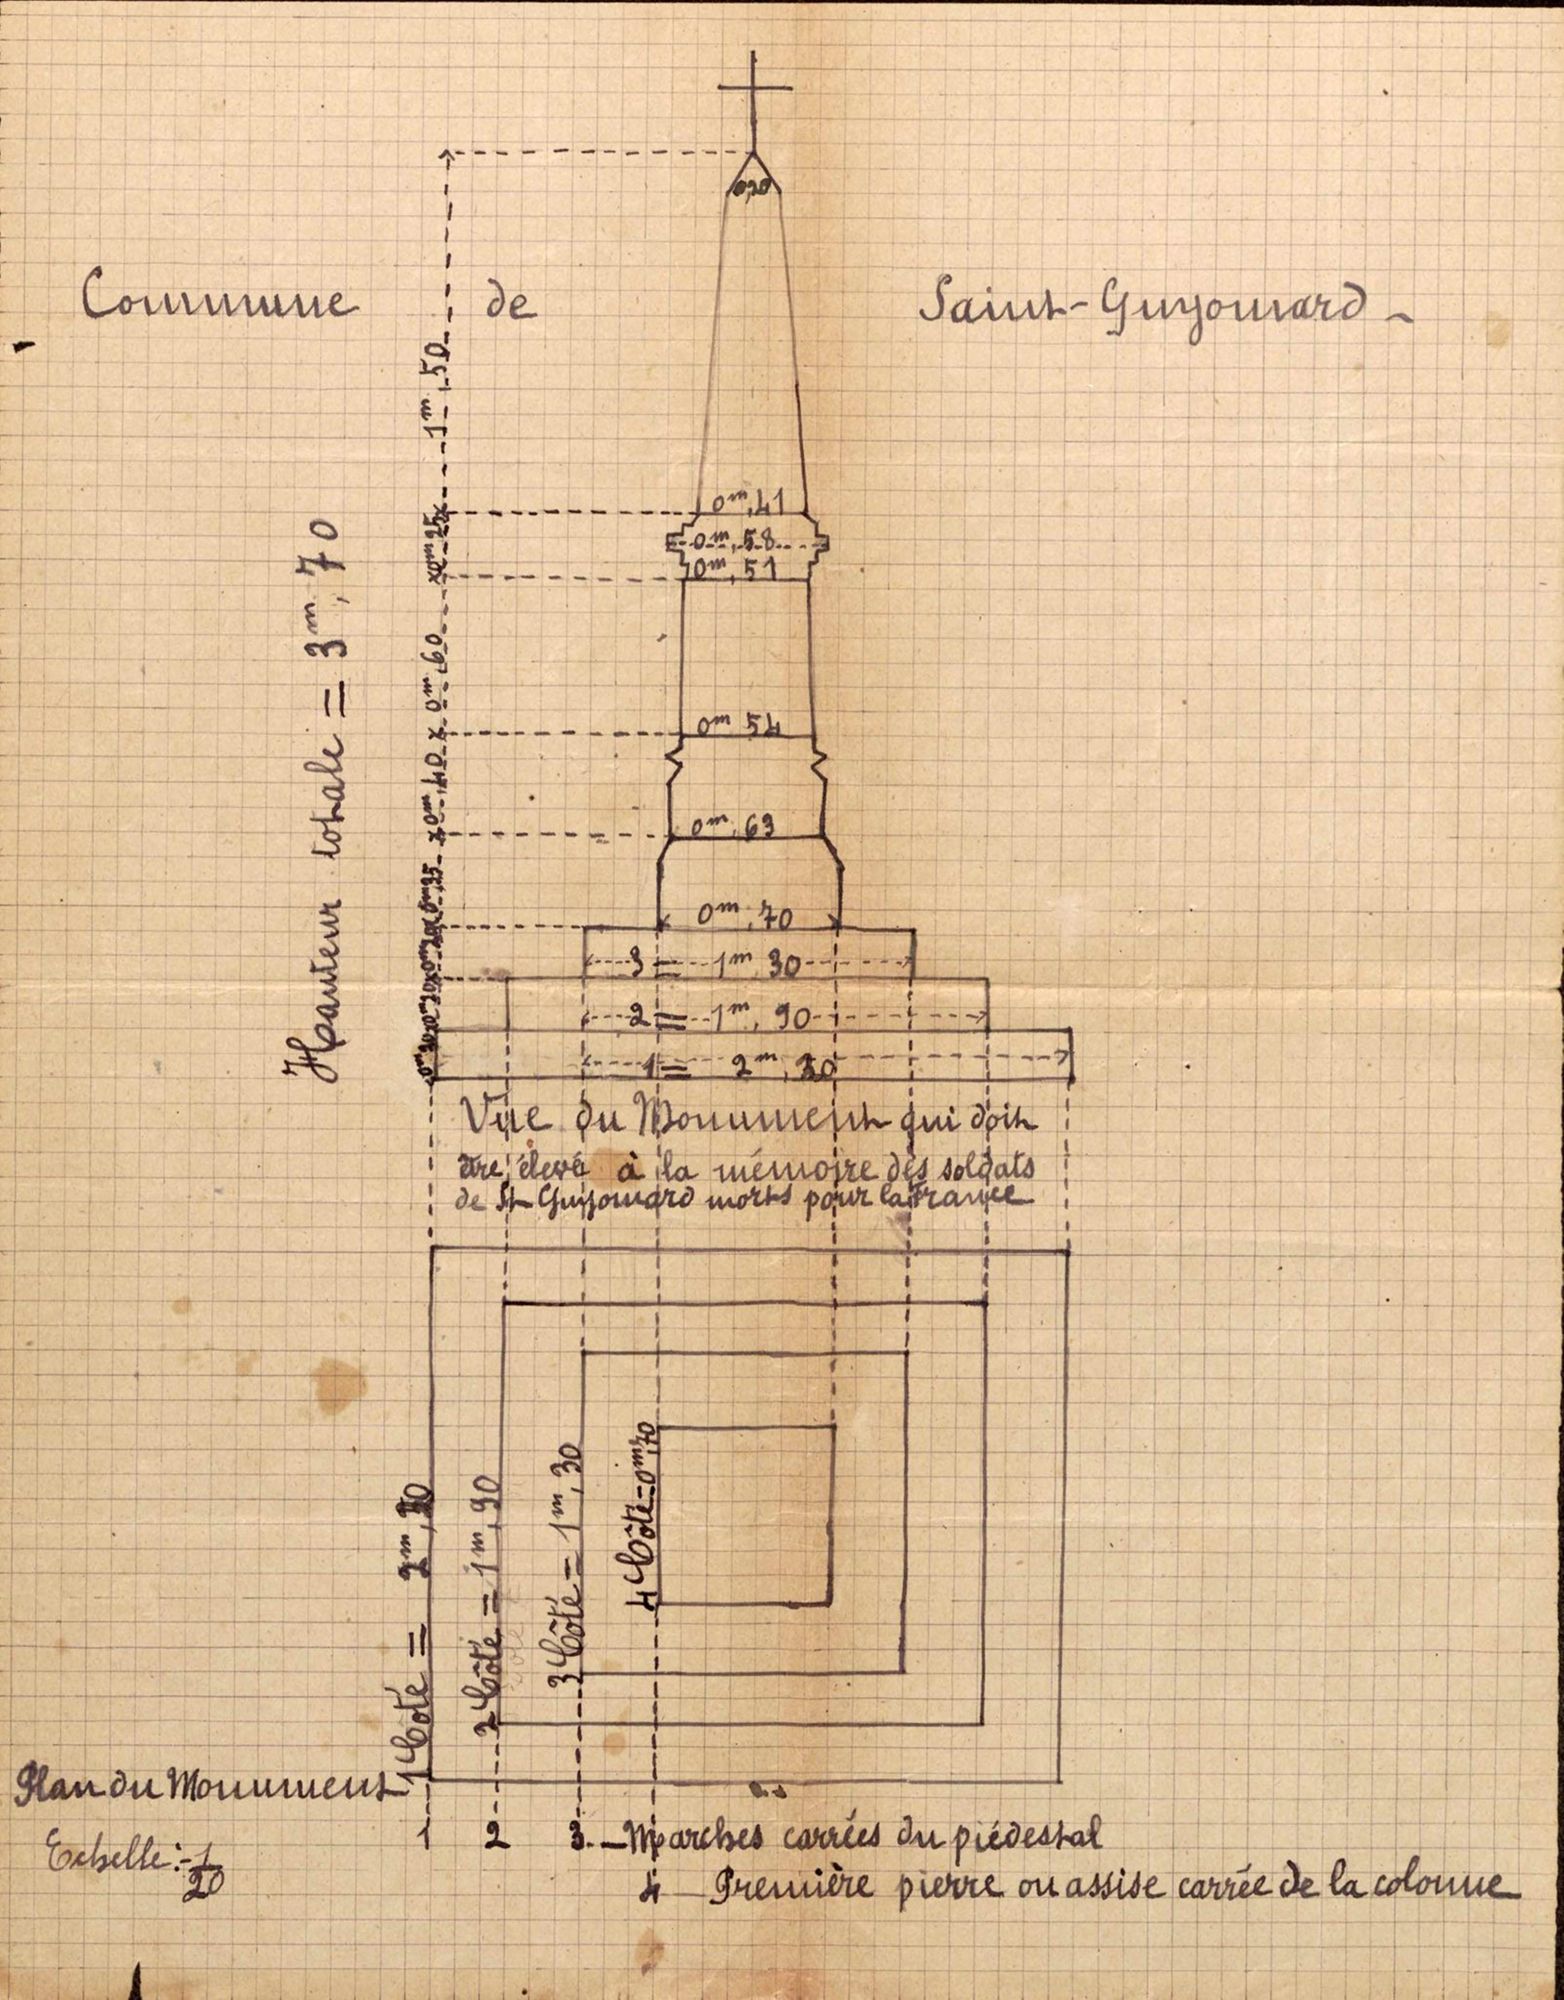 0,20
Commune de Saint-Guyomard -
1m,50
0m,41
0m,25
0m,58
0m,51
Hauteur totale = 3m,70
0m,60
0m 54
0m,40
0m,63
0m,35
0m,70
0m20
3 = 1m 30
0m20
2 = 1m, 90
1 = 2m,
Vue du Monument qui doit
être élevé à la mémoire des soldats
de St Guyomard morts pour la France
1 Côté = 2m,
2 Côté = 1m, 90
3 Côté = 1m, 30
4 Côté = 0m,70
Plan du Monument
Echelle :- 1/20
1 2 3. - Marches carrées du piédestal
4 - Première pierre ou assise carrée de la colonne